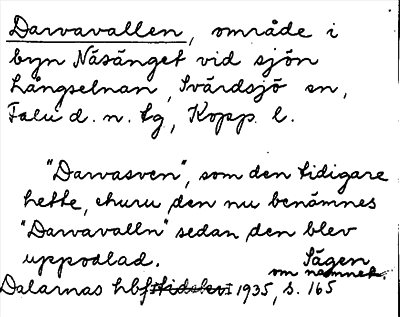 Darvavallen, område i
byn Näsänget vid sjön
Långselnan, Svärdsjö sn,
Falu d. n. tg, Kopp. l.
"Darvasven", som den tidigare
hette, ehuru den nu benämnes
"Darvavalln" sedan den blev
uppodlad. Sägen
om namnet.
Dalarnas hbf 1935, s. 165